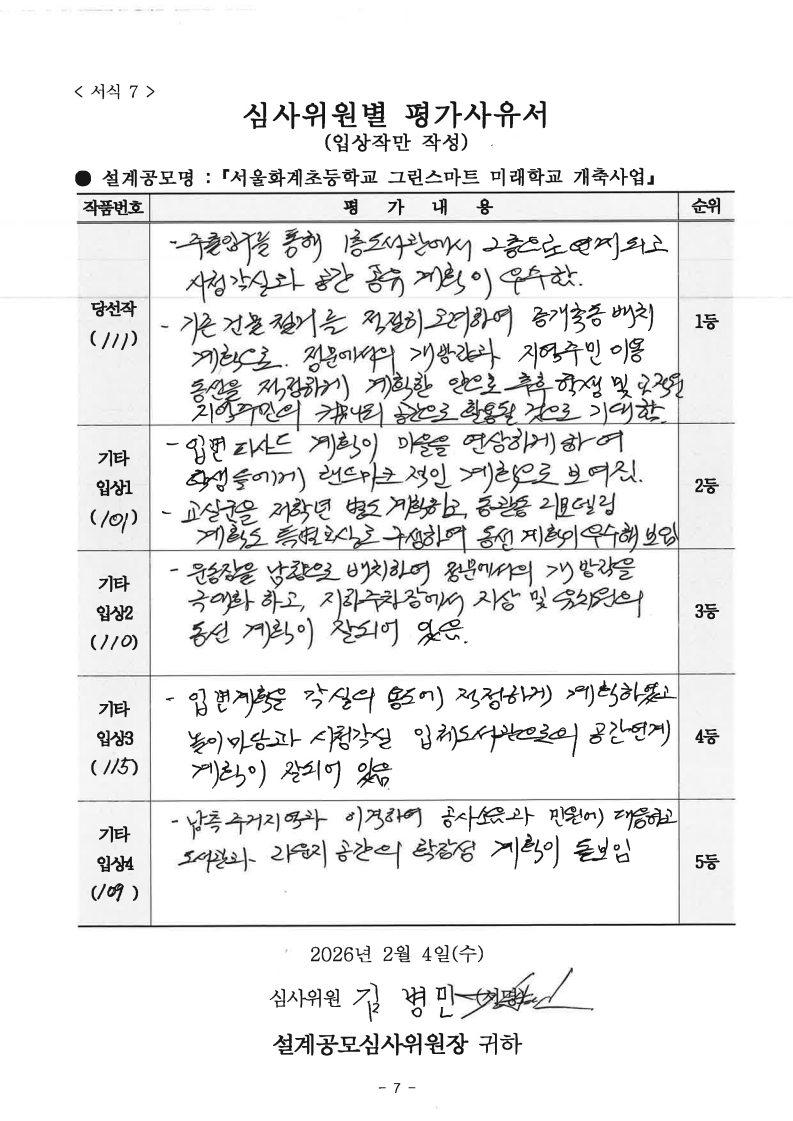 < 서식 7 >
심사위원별 평가사유서
(입상작만 작성)
● 설계공모명 : 『서울화계초등학교 그린스마트 미래학교 개축사업』
작품번호 평 가 내 용 순위
당선작
(111)
- 주출입구를 통해 1층도서관에서 2층으로 연계되고
시청각실과 공간 공유 계획이 우수함.
- 기존 건물 철거를 적절히 고려하여 증개축동 배치
계획으로. 정문에서의 개방감과 지역주민 이용
동선을 적정하게 계획한 안으로 추후 학생 및 교직원
지역주민의 커뮤니티 공간으로 활용될 것으로 기대함.
1등
기타
입상1
(101)
- 입면 파사드 계획이 마을을 연상하게 하여
학생들에게 랜드마크적인 계획으로 보여짐.
- 교실군을 저학년 별도 계획하고, 동관동 리모델링
계획도 특별교실로 구성하여 동선 계획이 우수해 보임
2등
기타
입상2
(110)
- 운동장을 남향으로 배치하여 정문에서의 개방감을
극대화 하고, 지하주차장에서 지상 및 유치원의
동선 계획이 잘되어 있음.
3등
기타
입상3
(115)
- 입면계획을 각실의 용도에 적정하게 계획하였고
놀이마당과 시청각실 입체도서관으로의 공간연계
계획이 잘되어 있음
4등
기타
입상4
(109)
- 남측 주거지역과 이격하여 공사소음과 민원에 대응하고
도서관과 라운지 공간의 확장성 계획이 돋보임
5등
2026년 2월 4일(수)
심사위원 김 병 민
설계공모심사위원장 귀하
- 7 -